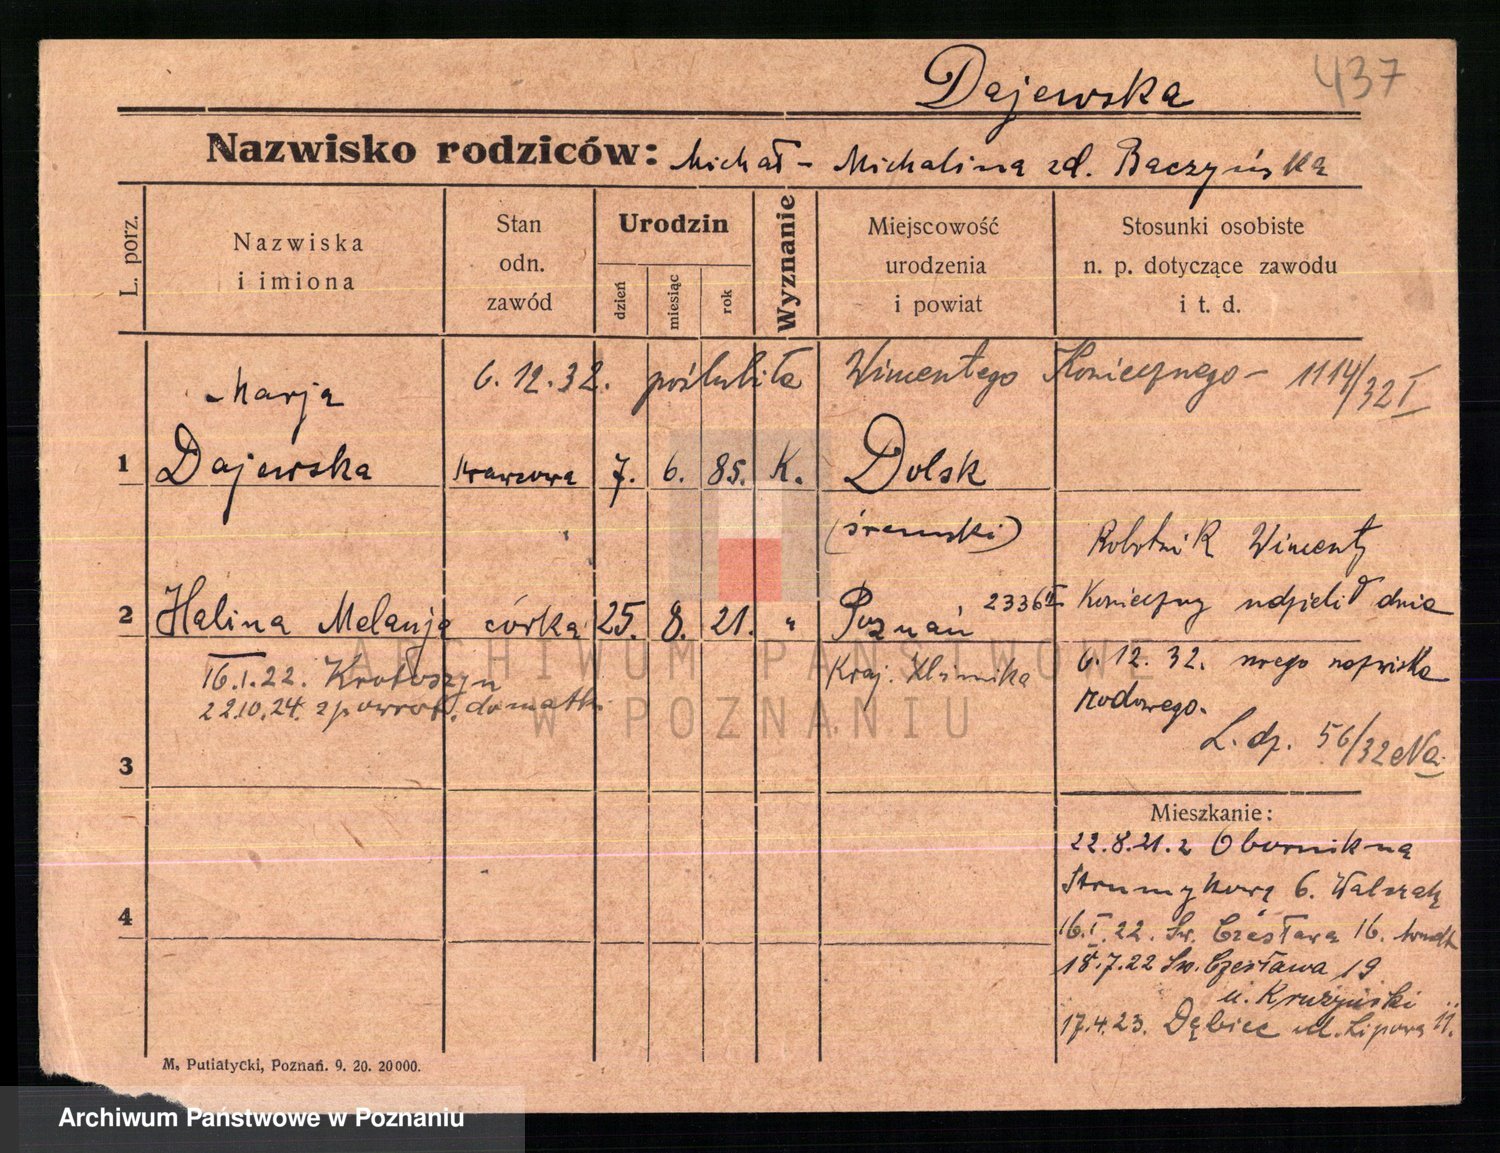 Dajewska 437
Nazwisko rodziców: Michał - Michalina zd. Baczyńska
L. porz.
Nazwiska
i imiona
Stan
odn.
zawód
Urodzin
dzień
miesiąc
rok
Wyznanie
Miejscowość
urodzenia
i powiat
Stosunki osobiste
n. p. dotyczące zawodu
i t. d.
6.12.32. poślubiła Wincentego Koniecznego - 1114/32 I
Marja
1 Dajewska krawcowa 7. 6. 85. K. Dolsk
(śremski)
2 Halina Melanja córka 25. 8. 21. " Poznań 2336 II
Kraj. Klinika
16.I.22. Krotoszyn
22.10.24. z powrot. do matki
Robotnik Wincenty
Konieczny udzielił dnia
6.12.32. swego nazwiska
rodowego.
L. dz. 56/32 Na
3
4
Mieszkanie:
22.8.21. z Obornik na
Strumykową 6. Walczak
16.I.22. Św. Czesława 16.
18.7.22 Św. Czesława 19
u. Kruzyński
17.4.23. Dębiec ul. Lipowa 11.
M. Putiatycki, Poznań. 9. 20. 20000.
ARCHIWUM PAŃSTWOWE
W POZNANIU
Archiwum Państwowe w Poznaniu